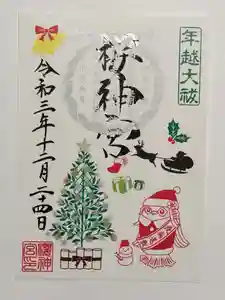 年越大祓
櫻神宮
令和三年十二月二十四日